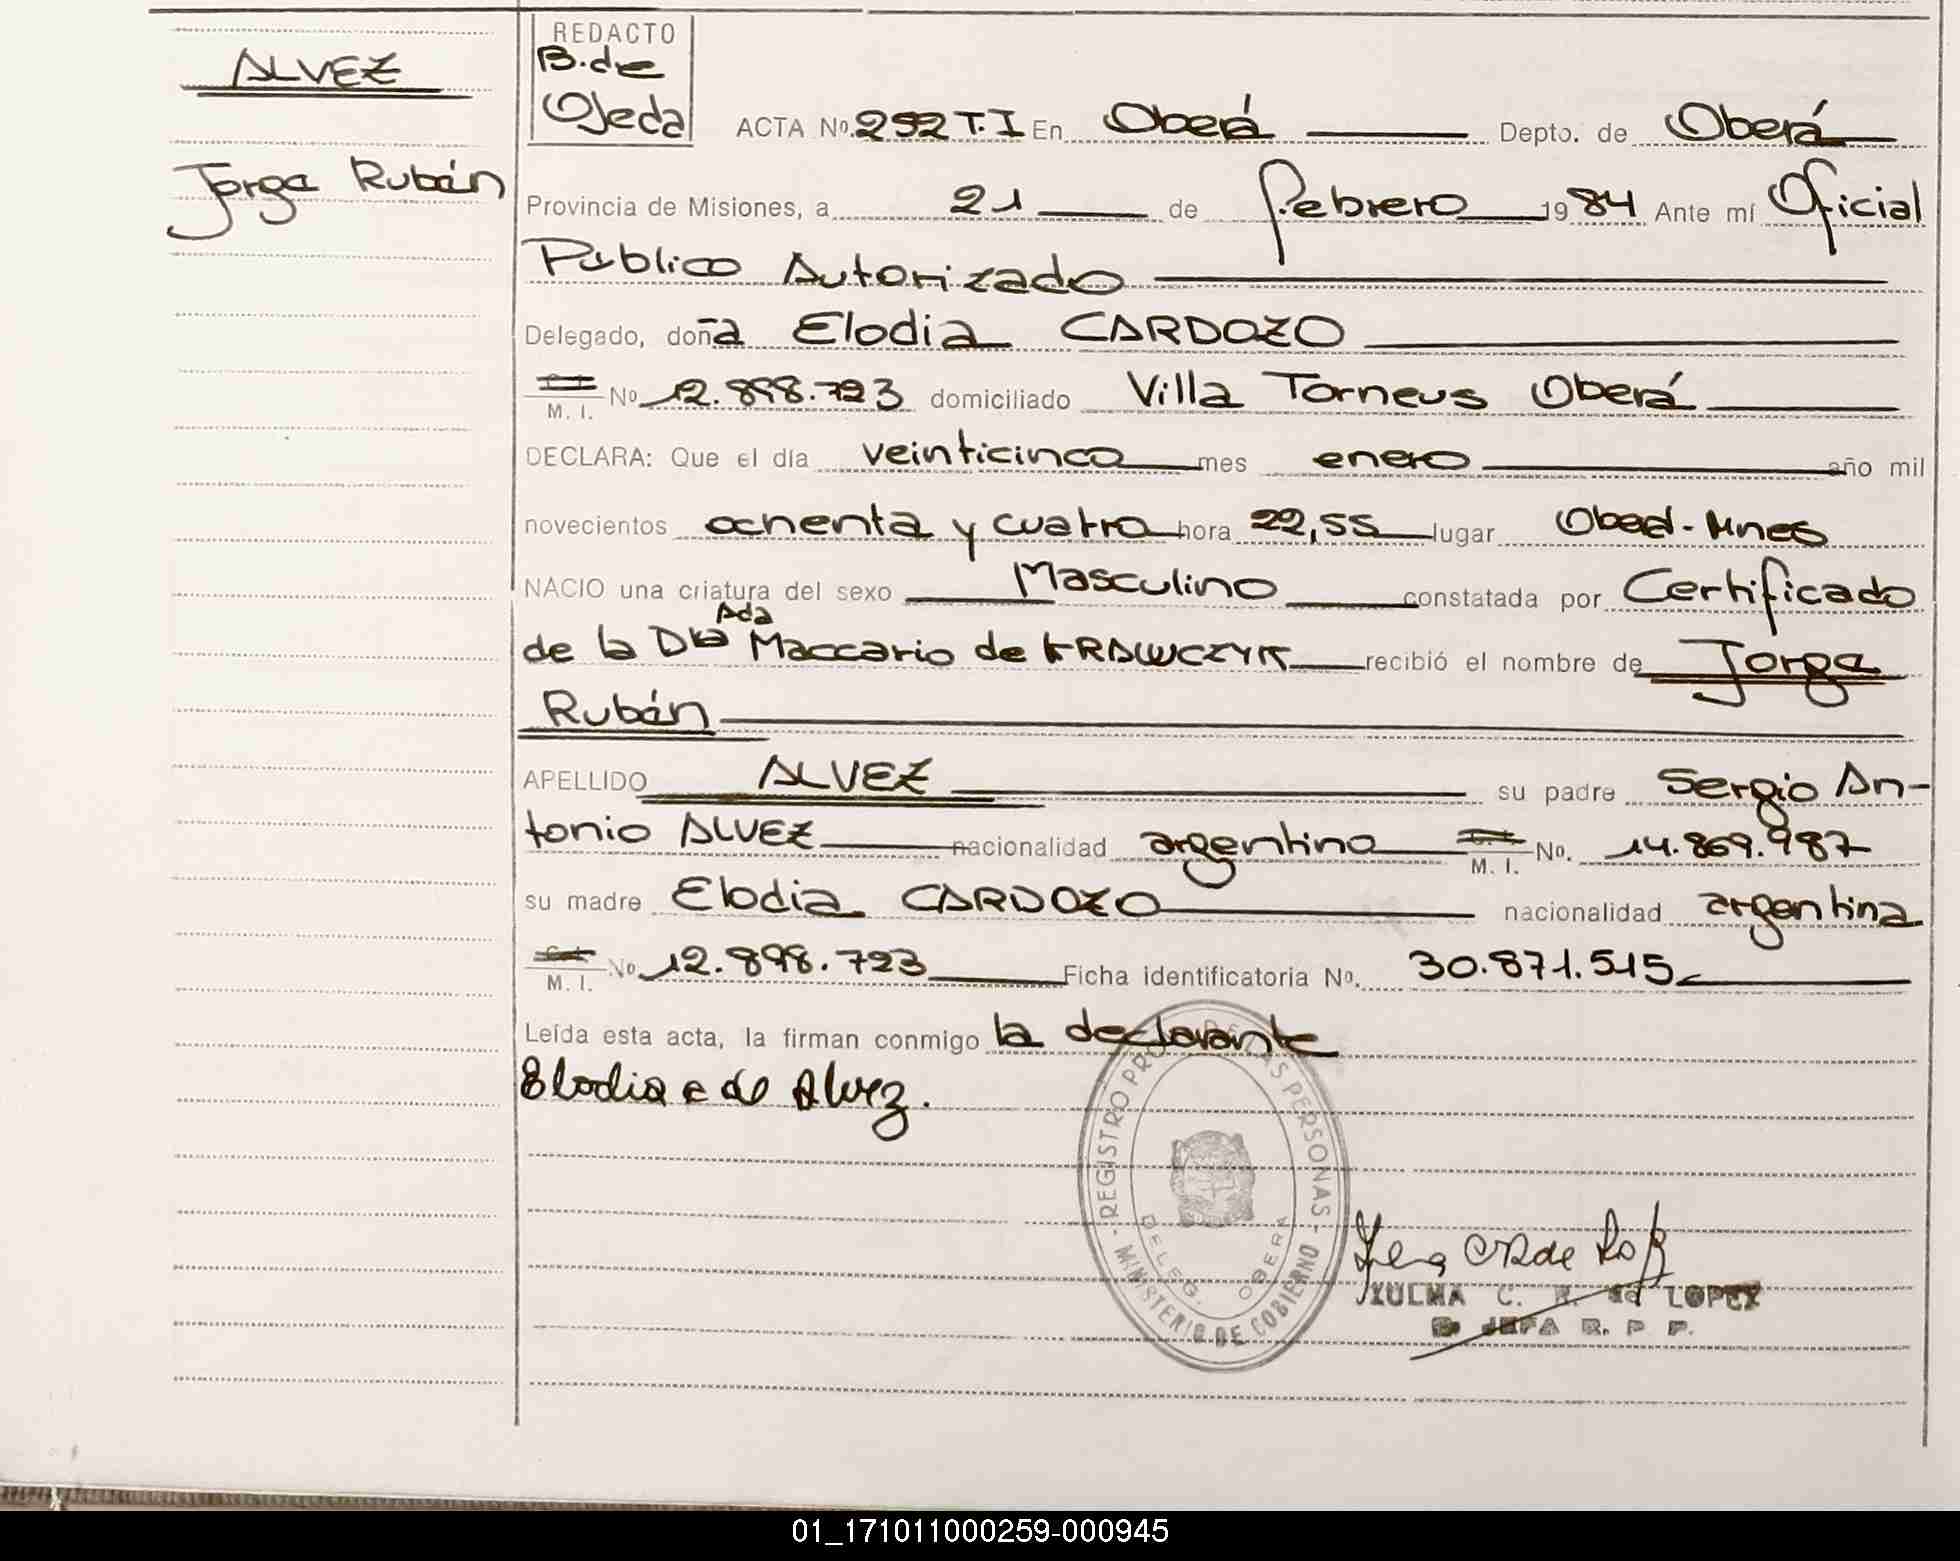 ALVEZ
Jorge Rubén
REDACTO
B. de
Ojeda
ACTA Nº. 292 T. I En Oberá Depto. de Oberá
Provincia de Misiones, a 21 de febrero 19 84 Ante mí Oficial
Publico Autorizado
Delegado, doña Elodia CARDOZO
M. I. Nº 12.898.723 domiciliado Villa Torneus Oberá
DECLARA: Que el día veinticinco mes enero año mil
novecientos ochenta y cuatro hora 22,55 lugar Oberá - Mnes
NACIO una criatura del sexo Masculino constatada por Certificado
de la Dra Ada Maccario de KRAWCZYK recibió el nombre de Jorge
Rubén
APELLIDO ALVEZ su padre Sergio An-
tonio ALVEZ nacionalidad argentina M. I. No. 14.869.987
su madre Elodia CARDOZO nacionalidad argentina
M. I. Nº 12.898.723 Ficha identificatoria Nº. 30.871.515
Leída esta acta, la firman conmigo la declarante
Elodia C de Alvez.
REGISTRO PROV. DE LAS PERSONAS - MINISTERIO DE GOBIERNO -
DELEG. OBERA
ZULMA C. R. de LOPEZ
JEFA R. P. P.
01_171011000259-000945